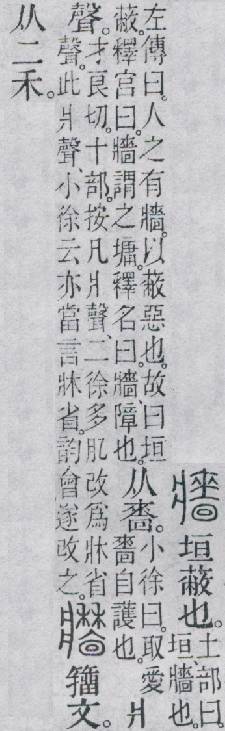 牆垣蔽也。土部曰。
垣、牆也。
左傳曰。人之有牆。以蔽惡也。故曰垣
蔽。釋宮曰。牆謂之墉。釋名曰。牆、障也。
从嗇。小徐曰。取愛
嗇自護也。
爿
聲。才良切。十部。按凡爿聲、二徐多肊改爲牀省
聲。此爿聲、小徐云亦當言牀省。韵會遂改之。
籒文。
从二禾。